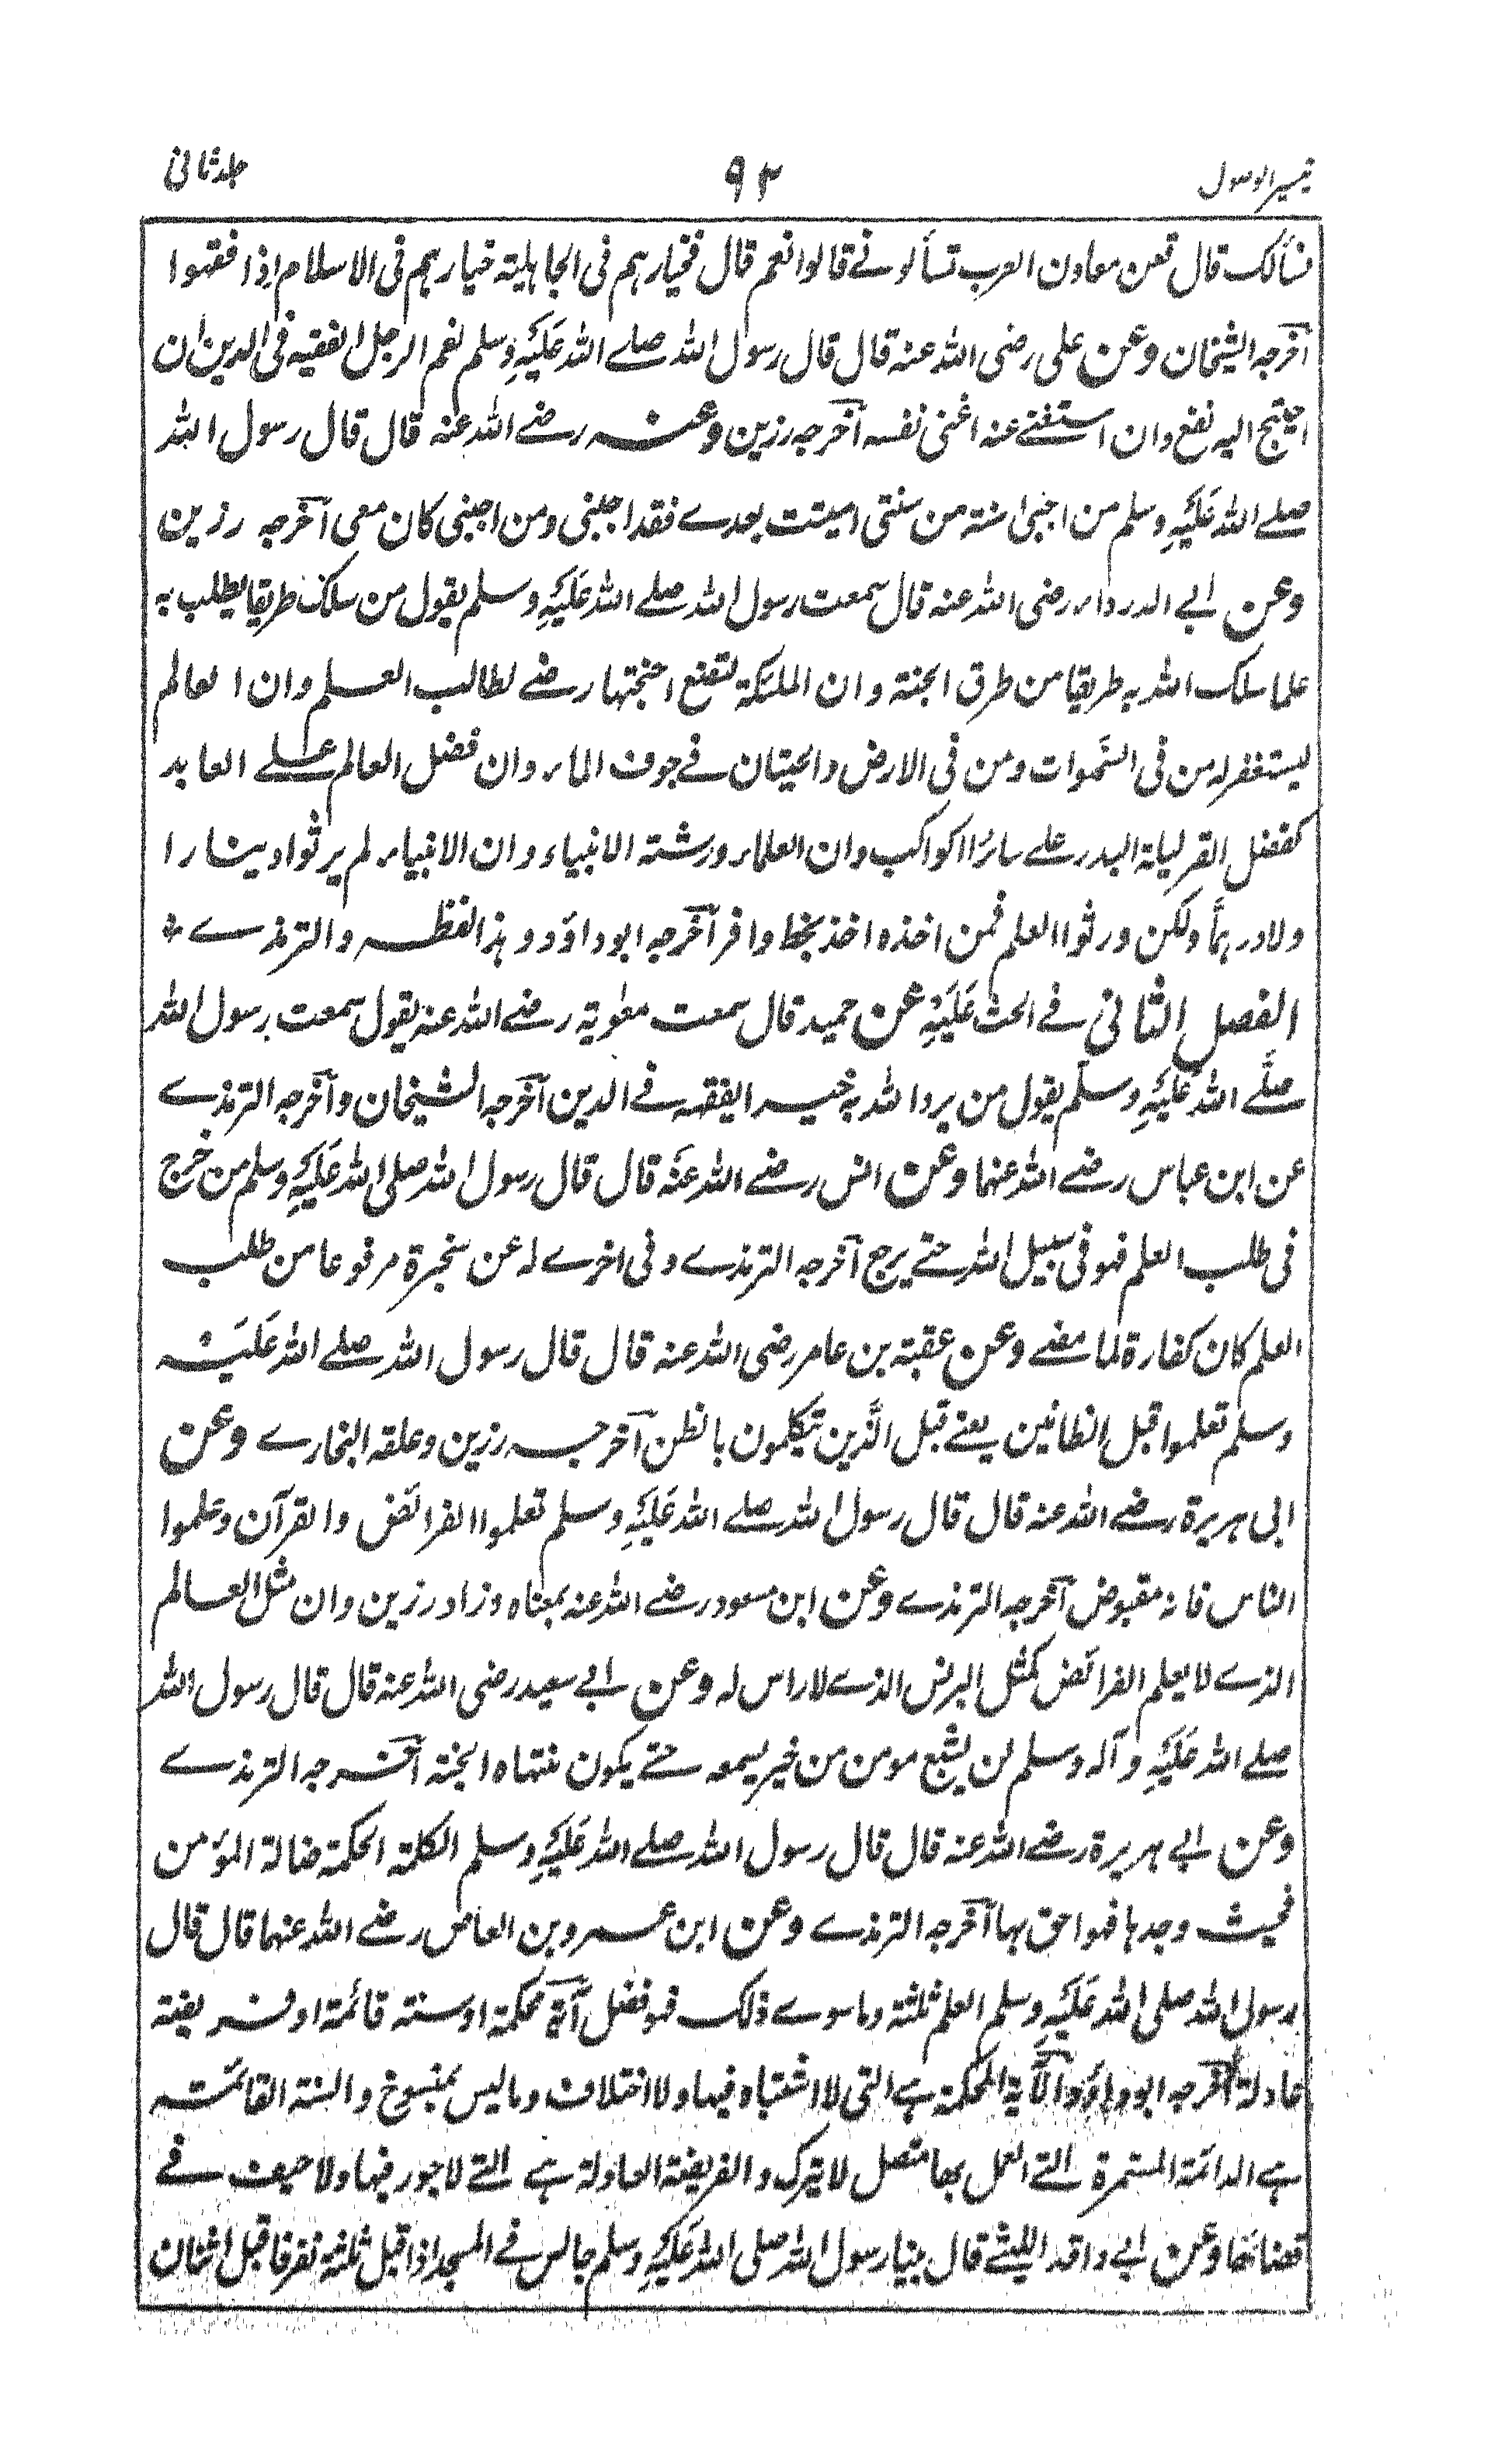 تيسير الوصول ٩٢ جلد ثانی
نسألك قال فعن معادن العرب تسألونے قالوا نعم قال فخيارہم فی الجاہلیۃ خیارہم فی الاسلام اذا فقہوا
آخرجہ الشیخان وعن علی رضی اللہ عنہ قال قال رسول اللہ صلے اللہ عَلَیْہِ وسلم نعم الرجل الفقیہ فی الدین ان
احتیج الیہ نفع وان استغنے عنہ اغنی نفسہ آخرجہ رزین وعنہ رضے اللہ عنہ قال قال رسول اللہ
صلے اللہ عَلَیْہِ وسلم من احیی سنۃ من سنتی امیتت بعدے فقد احبنی ومن احبنی کان معی آخرجہ رزین
وعن ابے الدرداء رضی اللہ عنہ قال سمعت رسول اللہ صلے اللہ عَلَیْہِ وسلم یقول من سلک طریقا یطلب بہ
علما سلک اللہ بہ طریقا من طرق الجنۃ وان الملئکۃ لتضع اجنحتہا رضے لطالب العلم وان العالم
لیستغفر لہ من فی السَّموات ومن فی الارض والحیتان فے جوف الماء وان فضل العالم علے العابد
کفضل القمر لیلۃ البدر علے سائر الکواکب وان العلماء ورثتہ الانبیاء وان الانبیاء لم یرثوا دینارا
ولا درہمًا ولکن ورثوا العلم فمن اخذہ اخذ بحظ وافر آخرجہ ابوداؤد وہذا لفظہ والترمذے *
الفصل الثانی فے الحث عَلَیْہِ عن حمید قال سمعت معٰویۃ رضے اللہ عنہ یقول سمعت رسول اللہ
صلَّے اللہ عَلَیْہِ وسلم یقول من یرد اللہ بہ خیرا یفقہہ فے الدین آخرجہ الشیخان وآخرجہ الترمذے
عن ابن عباس رضے اللہ عنہما وعن انس رضے اللہ عنَہ قال قال رسول اللہ صلی اللہ عَلَیْہِ وسلم من خرج
فی طلب العلم فہو فی سبیل اللہ حتے یرجع آخرجہ الترمذے وفی اخرے لہ عن سخبرۃ مرفوعا من طلب
العلم کان کفارۃ لما مضے وعن عقبۃ بن عامر رضی اللہ عنہ قال قال رسول اللہ صلے اللہ عَلَیْہ
وسلم تعلموا قبل الظانین یعنے قبل الَّذین یتکلمون بالظن آخرجہ رزین وعلقہ البخارے وعن
ابی ہریرۃ رضے اللہ عنہ قال قال رسول اللہ صلے اللہ عَلَیْہِ وسلم تعلموا الفرائض والقرآن وعلموا
الناس فانہ مقبوض آخرجہ الترمذے وعن ابن مسعود رضے اللہ عنہ بمعناہ وزاد رزین وان مثل العالم
الذے لا یعلم الفرائض کمثل البرنس الذے لا راس لہ وعن ابے سعید رضی اللہ عنہ قال قال رسول اللہ
صلے اللہ عَلَیْہِ وآلہ وسلم لن یشبع مومن من خیر یسمعہ حتے یکون منتہاہ الجنۃ آخرجہ الترمذے
وعن ابے ہریرۃ رضے اللہ عنہ قال قال رسول اللہ صلے اللہ عَلَیْہِ وسلم الکلمۃ الحکمۃ ضالۃ المؤمن
فحیث وجدہا فہو احق بہا آخرجہ الترمذے وعن ابن عمرو بن العاص رضے اللہ عنہما قال قال
رسول اللہ صلی اللہ عَلَیْہِ وسلم العلم ثلثۃ وما سوے ذلک فہو فضل آیۃ محکمۃ او سنۃ قائمۃ او فریضۃ
عادلۃ آخرجہ ابو داؤد الآیۃ المحکمۃ ہے التی لا اشتباہ فیہا ولا اختلاف وما لیس بمنسوخ والسنۃ القائمۃ
ہے الدائمۃ المستمرۃ التے العمل بھا متصل لا یترک والفریضۃ العادلۃ ہے التے لا جور فیہا ولا حیف فے
قضائھا وعن ابے واقد اللیثے قال بینا رسول اللہ صلی اللہ عَلَیْہِ وسلم جالس فے المسجد اذ اقبل ثلثۃ نفر فاقبل اثنان